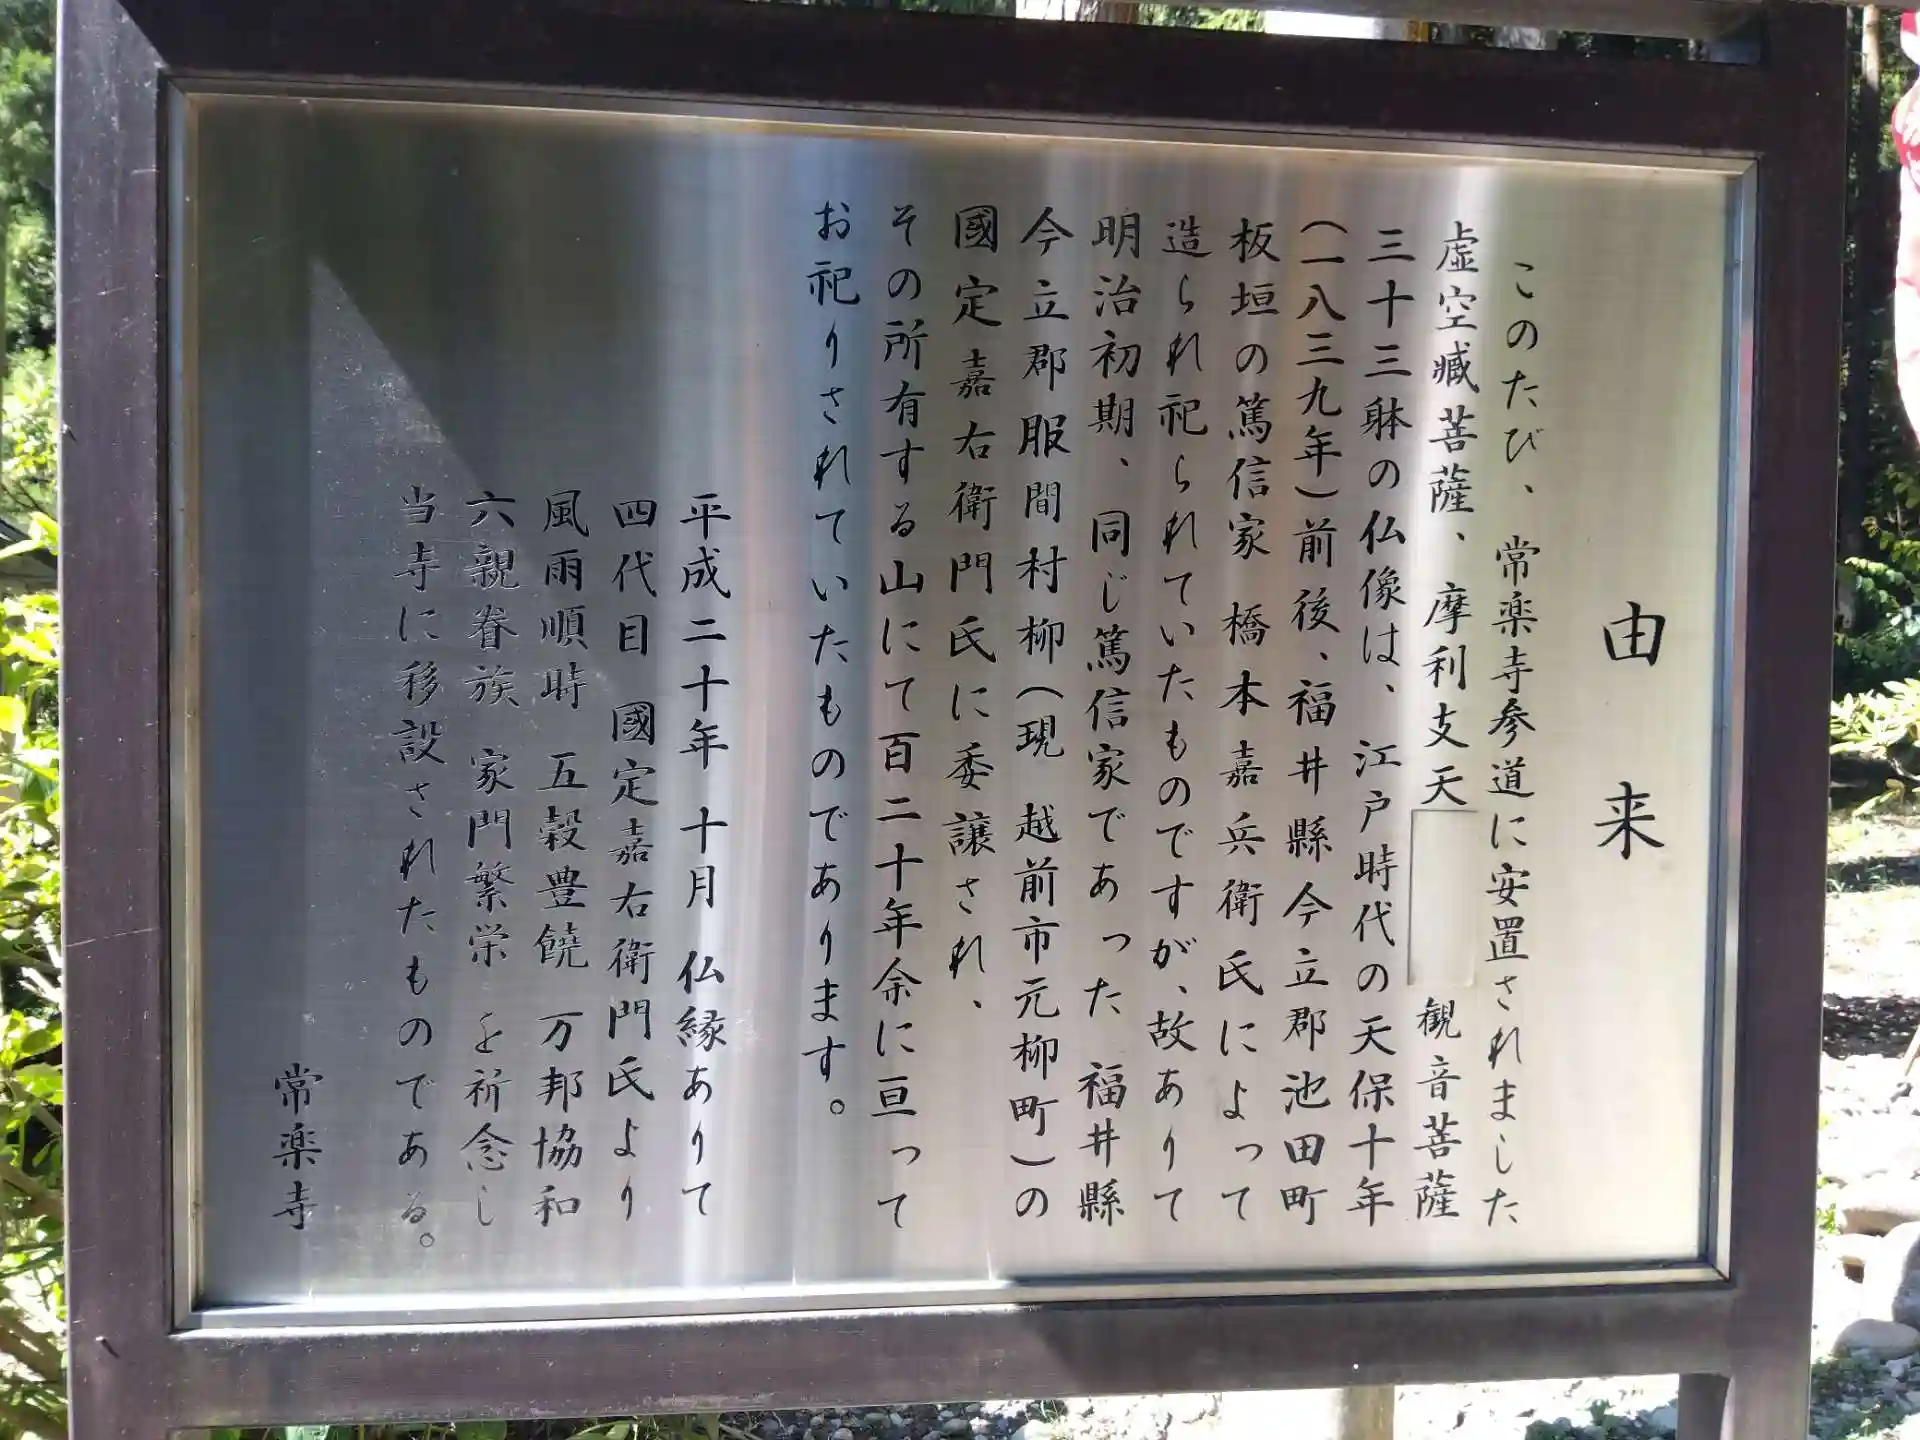 由来
このたび、常楽寺参道に安置されました
虚空臧菩薩、摩利支天 観音菩薩
三十三躰の仏像は、江戸時代の天保十年
（一八三九年）前後、福井縣今立郡池田町
板垣の篤信家 橋本嘉兵衛氏によって
造られ祀られていたものですが、故ありて
明治初期、同じ篤信家であった 福井縣
今立郡服間村柳（現 越前市元柳町）の
國定嘉右衛門氏に委譲され、
その所有する山にて百二十年余に亘って
お祀りされていたものであります。
平成二十年 十月 仏縁ありて
四代目 國定嘉右衛門氏より
風雨順時 五穀豊饒 万邦協和
六親眷族 家門繁栄 を祈念し
当寺に移設されたものである。
常楽寺